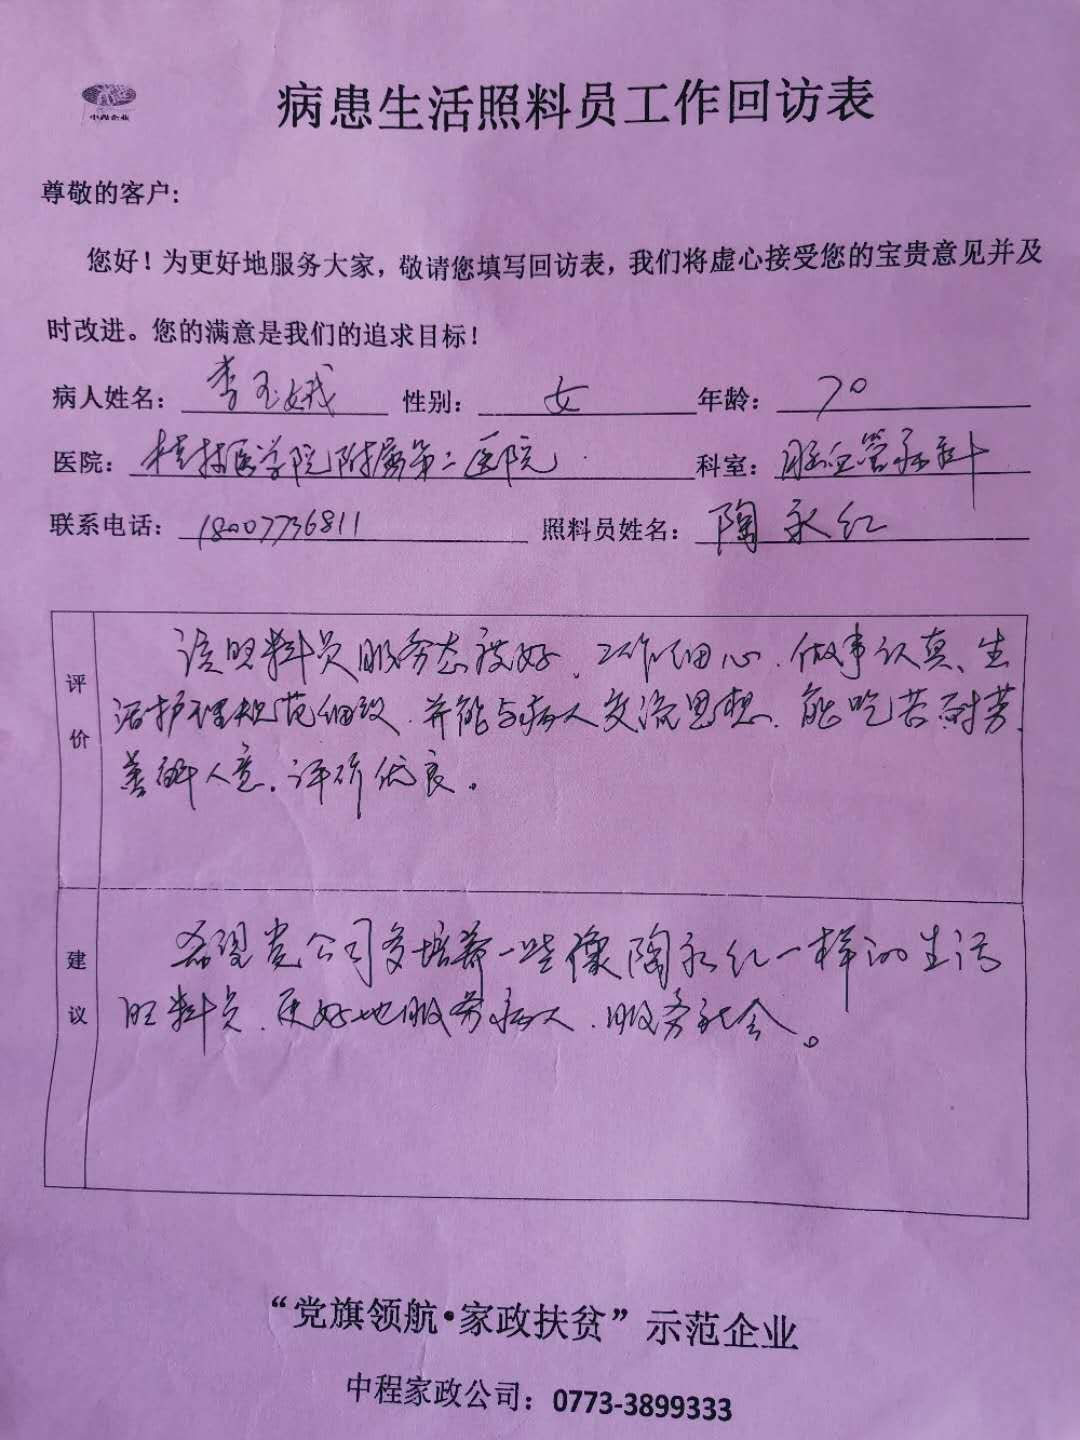 中程企业
病患生活照料员工作回访表
尊敬的客户:
您好！为更好地服务大家，敬请您填写回访表，我们将虚心接受您的宝贵意见并及
时改进。您的满意是我们的追求目标！
病人姓名：李玉娥 性别：女 年龄：70
医院：桂林医学院附属第二医院 科室：脑血管病科
联系电话：18007736811 照料员姓名：陶永红
评价
该照料员服务态度好、工作细心、做事认真、生
活护理规范细致、并能与病人交流思想、能吃苦耐劳、
善解人意。评价优良。
建议
希望贵公司多培养一些像陶永红一样的生活
照料员、更好地服务病人、服务社会。
“党旗领航•家政扶贫”示范企业
中程家政公司：0773-3899333